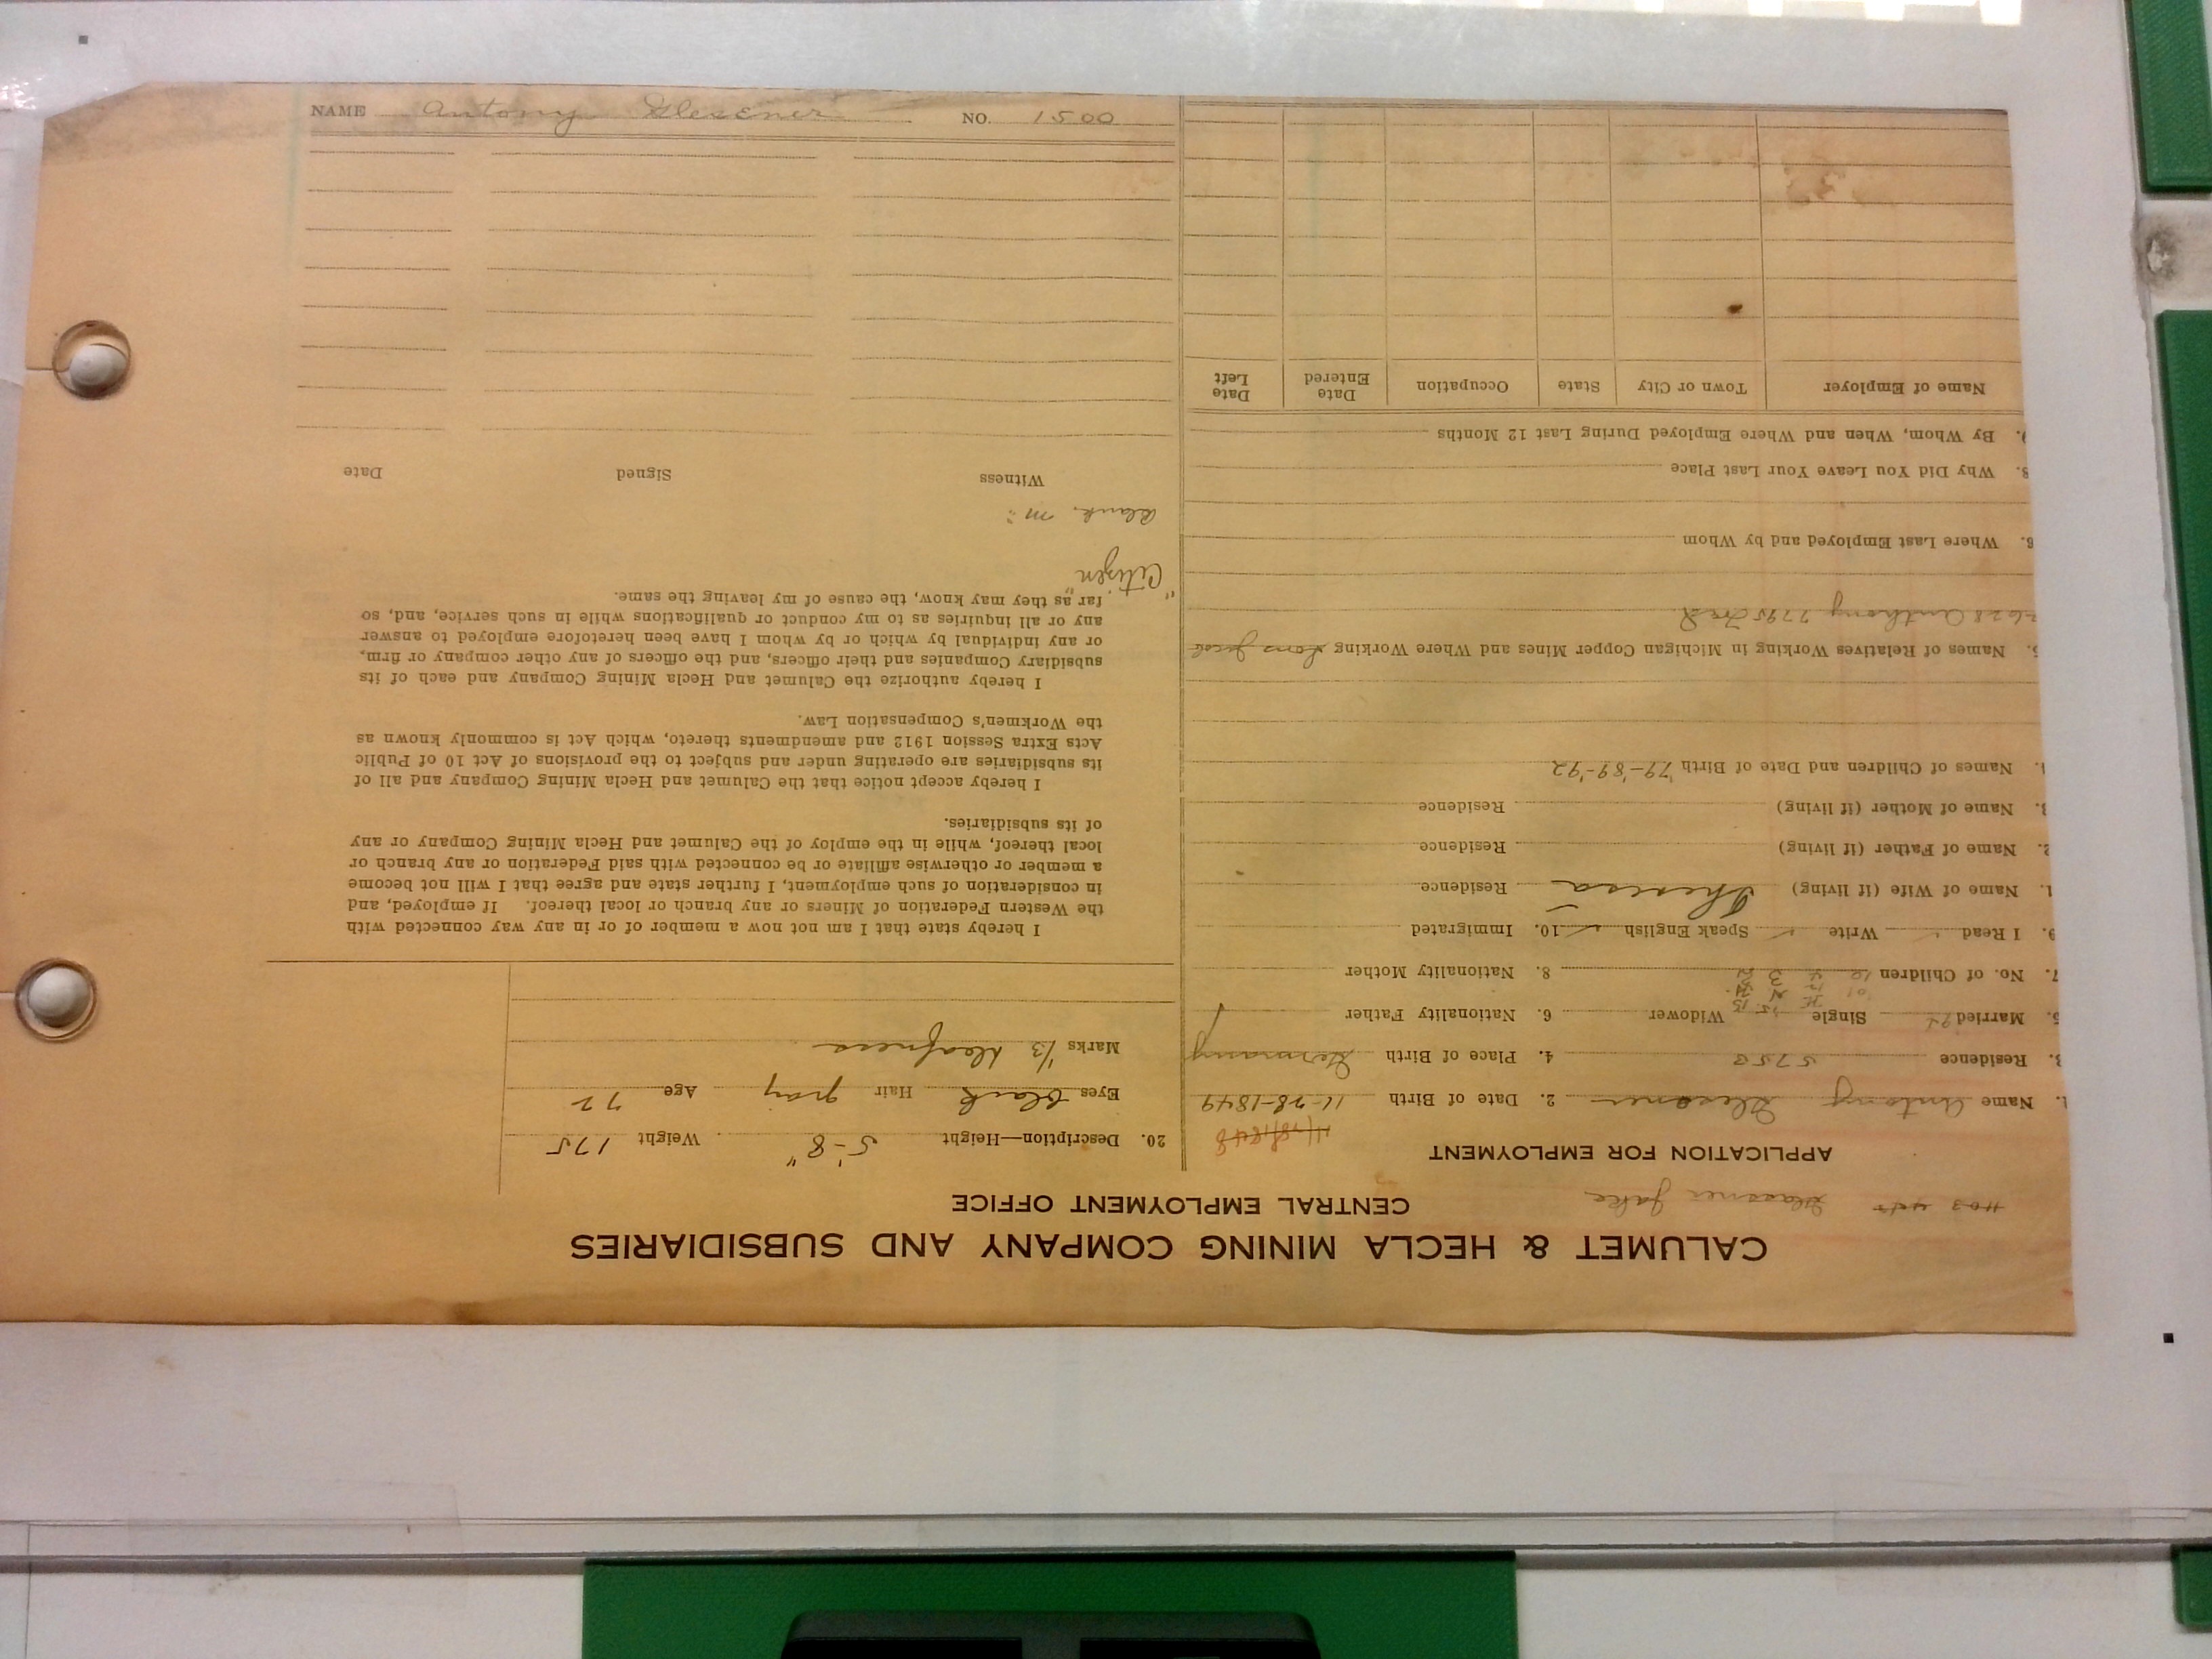 CALUMET & HECLA MINING COMPANY AND SUBSIDIARIES
CENTRAL EMPLOYMENT OFFICE
APPLICATION FOR EMPLOYMENT
11-28-1848
1. Name Antony 2. Date of Birth 11-28-1849
3. Residence 5750 4. Place of Birth Germany
5. Married Single Widower 6. Nationality Father
7. No. of Children 8. Nationality Mother
9. I Read Write Speak English 10. Immigrated
1. Name of Wife (if living) Theresa Residence
2. Name of Father (if living) Residence
3. Name of Mother (if living) Residence
4. Names of Children and Date of Birth '79-'89-'92
5. Names of Relatives Working in Michigan Copper Mines and Where Working Sons Jacob
Anthony 7795 Fred
6. Where Last Employed and by Whom
8. Why Did You Leave Your Last Place
9. By Whom, When and Where Employed During Last 12 Months
Name of Employer Town or City State Occupation Date Entered Date Left
20. Description—Height 5'-8" Weight 175
Eyes black Hair gray Age 72
Marks 1/3 deafness
I hereby state that I am not now a member of or in any way connected with
the Western Federation of Miners or any branch or local thereof. If employed, and
in consideration of such employment, I further state and agree that I will not become
a member or otherwise affiliate or be connected with said Federation or any branch or
local thereof, while in the employ of the Calumet and Hecla Mining Company or any
of its subsidiaries.
I hereby accept notice that the Calumet and Hecla Mining Company and all of
its subsidiaries are operating under and subject to the provisions of Act 10 of Public
Acts Extra Session 1912 and amendments thereto, which Act is commonly known as
the Workmen's Compensation Law.
I hereby authorize the Calumet and Hecla Mining Company and each of its
subsidiary Companies and their officers, and the officers of any other company or firm,
or any individual by which or by whom I have been heretofore employed to answer
any or all inquiries as to my conduct or qualifications while in such service, and, so
far as they may know, the cause of my leaving the same.
"Citizen"
Witness Signed Date
NAME Antony NO. 1500